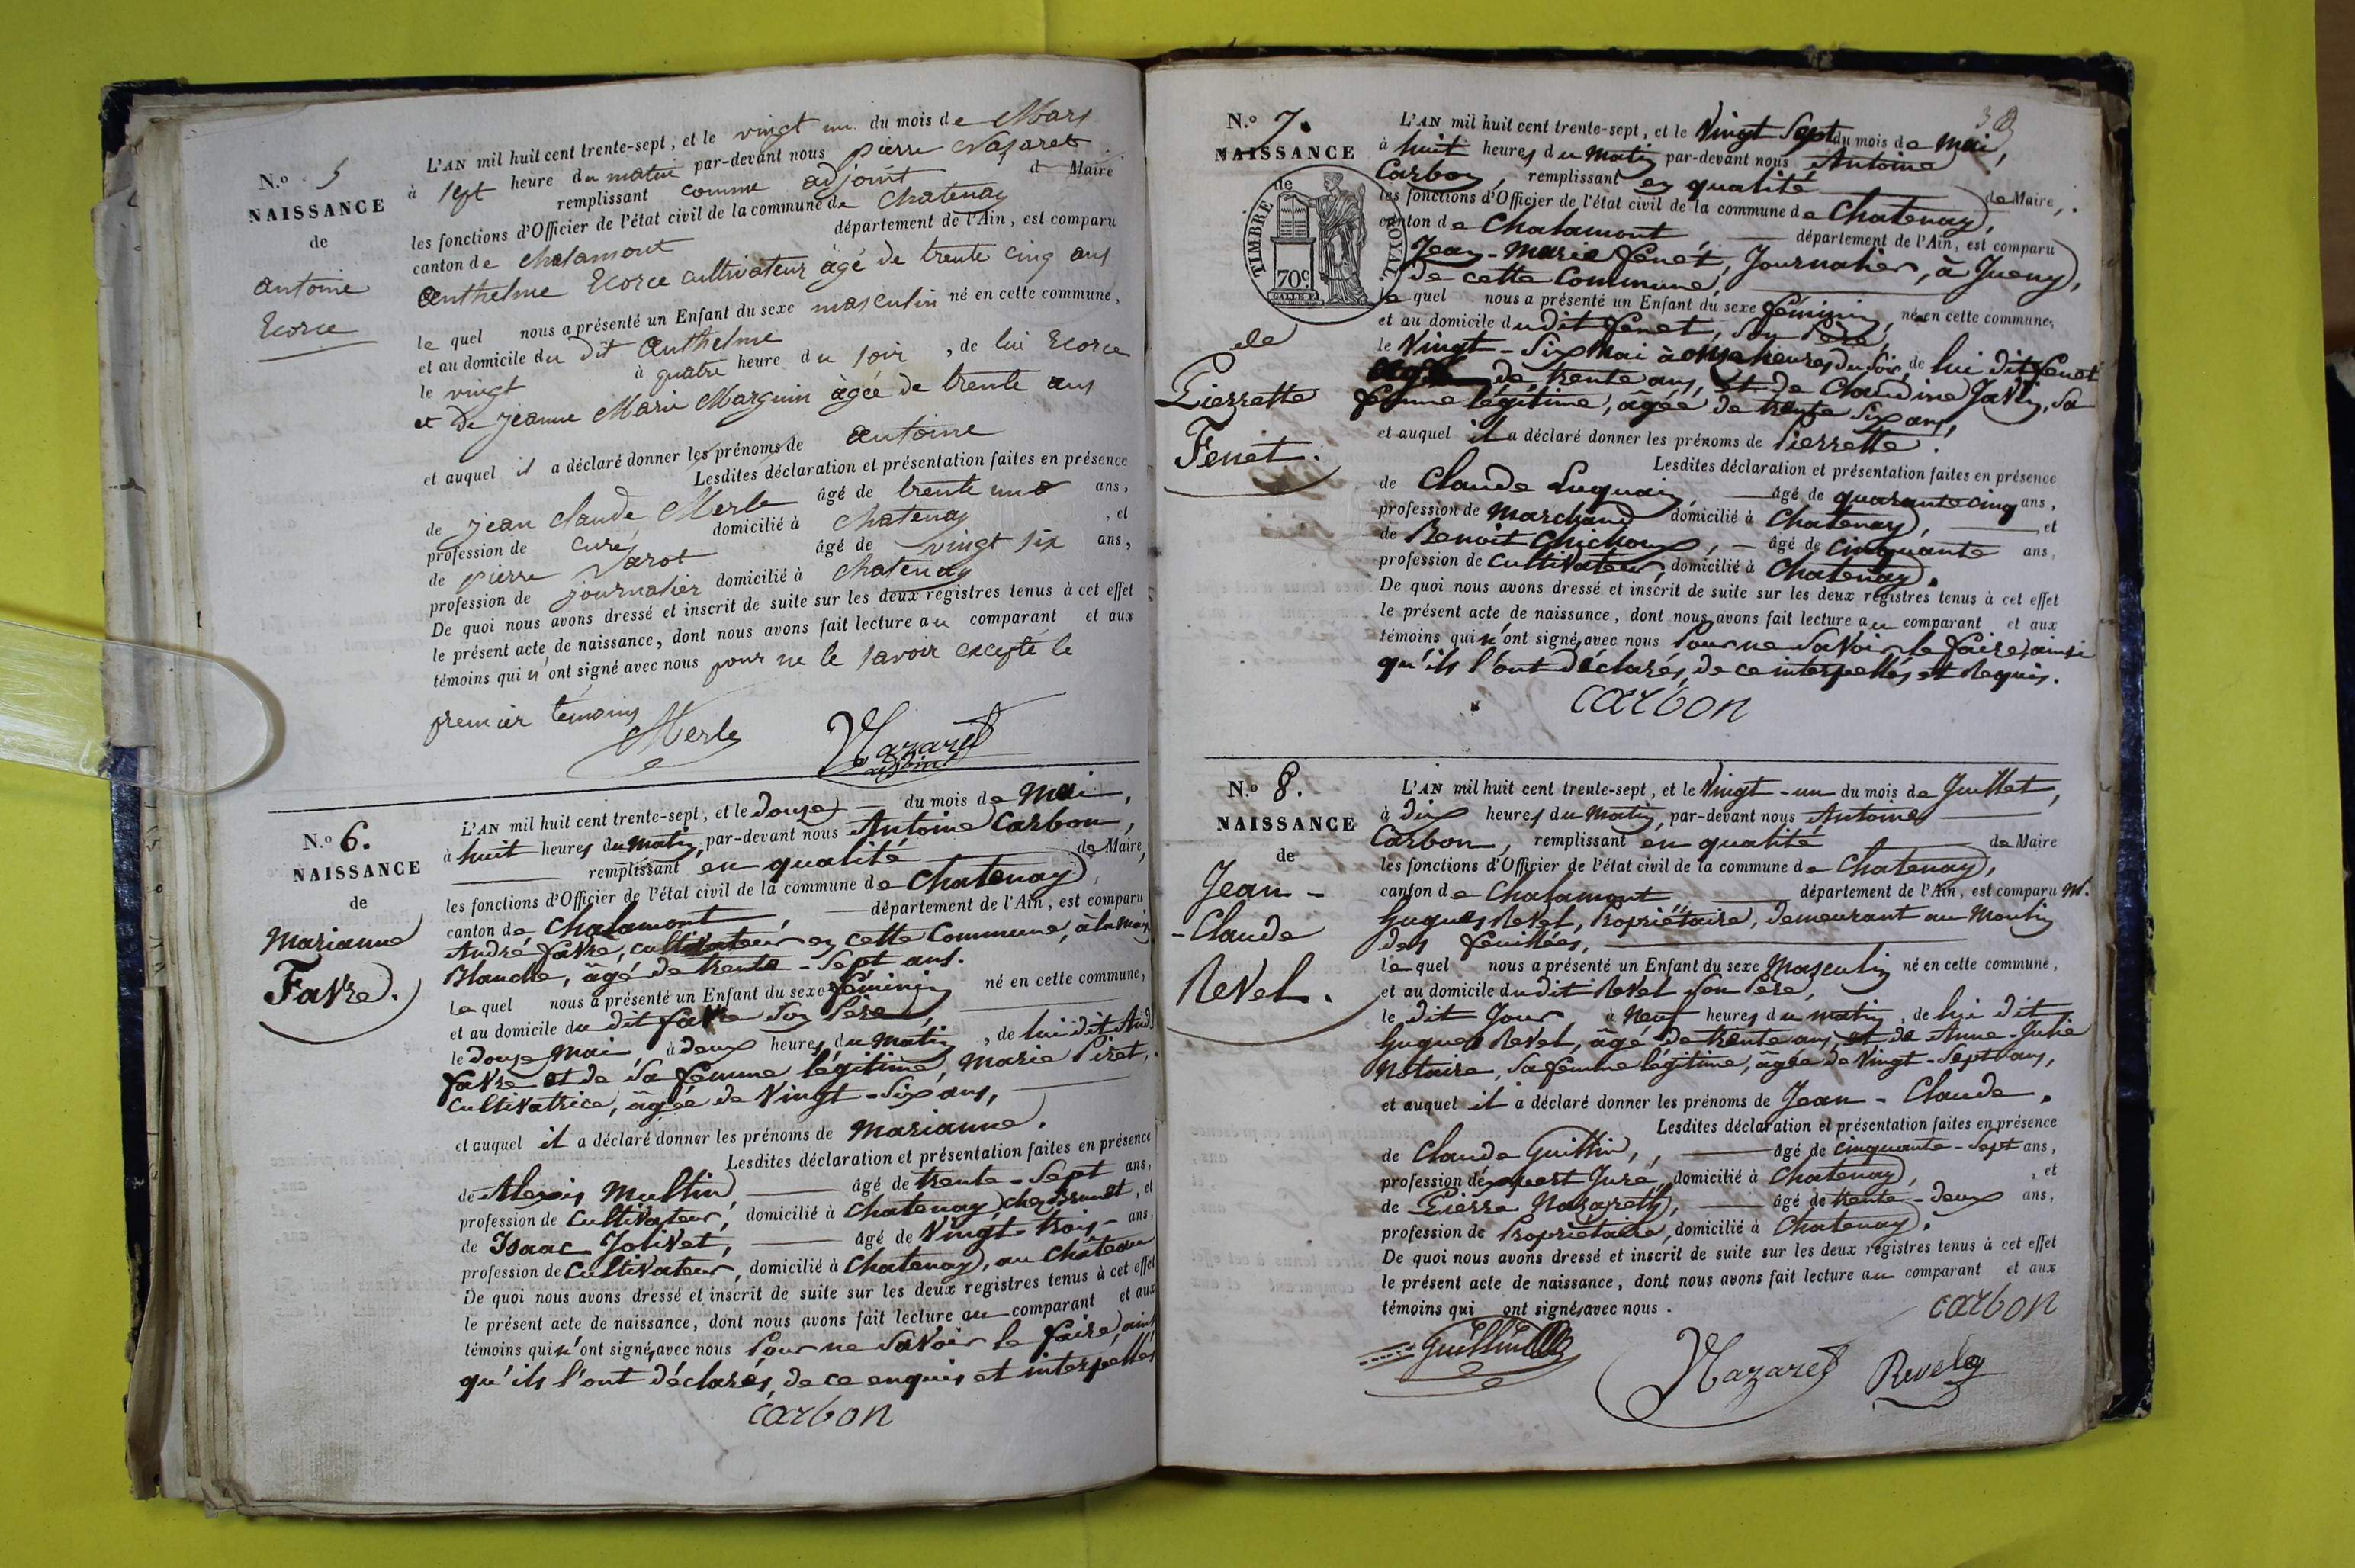 N.º 5
NAISSANCE
de
antoine
Ecorce
L'AN mil huit cent trente-sept, et le vingt un du mois de Mars
à sept heure du matin par-devant nous pierre Nazaret
remplissant comme adjoint d Maire
les fonctions d'Officier de l'état civil de la commune de Chatenay
canton de chalamont département de l'Ain, est comparu
Anthelme Ecorce cultivateur âgé de trente cinq ans
le quel nous a présenté un Enfant du sexe masculin né en cette commune,
et au domicile du dit Anthelme
le vingt à quatre heure du soir, de lui Ecorce
et de jeanne Marie Marguin âgée de trente ans
et auquel il a déclaré donner les prénoms de antoine
Lesdites déclaration et présentation faites en présence
de jean claude Merle âgé de trente un ans,
profession de curé domicilié à chatenay, et
de pierre âgé de vingt six ans,
profession de journalier domicilié à chatenay
De quoi nous avons dressé et inscrit de suite sur les deux registres tenus à cet effet
le présent acte de naissance, dont nous avons fait lecture au comparant et aux
témoins qui n'ont signé avec nous pour ne le savoir excepté le
premier témoins
Merle Nazaret
adjoint
N.º 6.
NAISSANCE
de
Marianne
Favre.
L'AN mil huit cent trente-sept, et le douze du mois de Mai,
à huit heures du matin, par-devant nous Antoine Carbon,
remplissant en qualité de Maire,
les fonctions d'Officier de l'état civil de la commune de Chatenay,
canton de Chalamont, département de l'Ain, est comparu
André favre, cultivateur en cette Commune, à la maison
Blanche, âgé de trente-sept ans.
le quel nous a présenté un Enfant du sexe féminin né en cette commune,
et au domicile du dit favre son Père,
le douze Mai, à deux heures du matin, de lui dit And.
favre et de sa femme légitime, Marie Piret,
cultivatrice, âgée de vingt-six ans,
et auquel il a déclaré donner les prénoms de Marianne.
Lesdites déclaration et présentation faites en présence
de Alexis Multin âgé de trente-sept ans,
profession de cultivateur, domicilié à Chatenay, chez Brunet, et
de Isaac Jolivet, âgé de vingt-trois ans,
profession de cultivateur, domicilié à Chatenay, au Château
De quoi nous avons dressé et inscrit de suite sur les deux registres tenus à cet effet
le présent acte de naissance, dont nous avons fait lecture au comparant et aux
témoins qui n'ont signé, avec nous Pour ne savoir le faire, ainsi
qu'ils l'ont déclarés, de ce enquis et interpellés
carbon
N.º 7.
NAISSANCE
de
TIMBRE ROYAL
70c
de
Pierrette
Fenet.
L'AN mil huit cent trente-sept, et le Vingt Sept du mois de Mai,
à huit heures du matin par-devant nous Antoine
Carbon, remplissant en qualité de Maire,
les fonctions d'Officier de l'état civil de la commune de Chatenay,
canton de Chalamont, département de l'Ain, est comparu
Jean-Marie fenet, Journalier, à Jueny,
de cette Commune,
le quel nous a présenté un Enfant du sexe féminin, né en cette commune,
et au domicile dudit fenet, son Père,
le Vingt-Six Mai à onze heures du soir, de lui dit fenet
de trente ans, et de Claudine Javin, sa
femme légitime, âgée de trente six ans,
et auquel il a déclaré donner les prénoms de Pierrette.
Lesdites déclaration et présentation faites en présence
de Claude Luquain, âgé de quarante cinq ans,
profession de marchand domicilié à Chatenay, et
de Benoit Chichoux, âgé de cinquante ans,
profession de cultivateur, domicilié à Chatenay.
De quoi nous avons dressé et inscrit de suite sur les deux registres tenus à cet effet
le présent acte de naissance, dont nous avons fait lecture au comparant et aux
témoins qui n'ont signé, avec nous Pour ne savoir le faire, ainsi
qu'ils l'ont déclarés, de ce interpellés et Requis.
carbon
N.º 8.
NAISSANCE
de
Jean-
-Claude
Revel.
L'AN mil huit cent trente-sept, et le Vingt-un du mois de Juillet,
à dix heures du matin, par-devant nous Antoine
Carbon, remplissant en qualité de Maire
les fonctions d'Officier de l'état civil de la commune de Chatenay,
canton de Chalamont département de l'Ain, est comparu M.
hugues Revel, Propriétaire, demeurant au Moulin
des feuillées,
le quel nous a présenté un Enfant du sexe Masculin né en cette commune,
et au domicile dudit Revel son Père,
le dit Jour à neuf heures du matin, de lui dit
hugues Revel, âgé de trente ans, et de Anne-Julie
Notaire, sa femme légitime, âgée de vingt-sept ans,
et auquel il a déclaré donner les prénoms de Jean-Claude.
Lesdites déclaration et présentation faites en présence
de Claude Guillin, âgé de cinquante-sept ans,
profession d'expert Juré, domicilié à Chatenay, et
de Pierre Nazareth, âgé de trente-deux ans,
profession de Propriétaire, domicilié à Chatenay.
De quoi nous avons dressé et inscrit de suite sur les deux registres tenus à cet effet
le présent acte de naissance, dont nous avons fait lecture au comparant et aux
témoins qui ont signé, avec nous.
carbon
Guillin Nazaret Revel